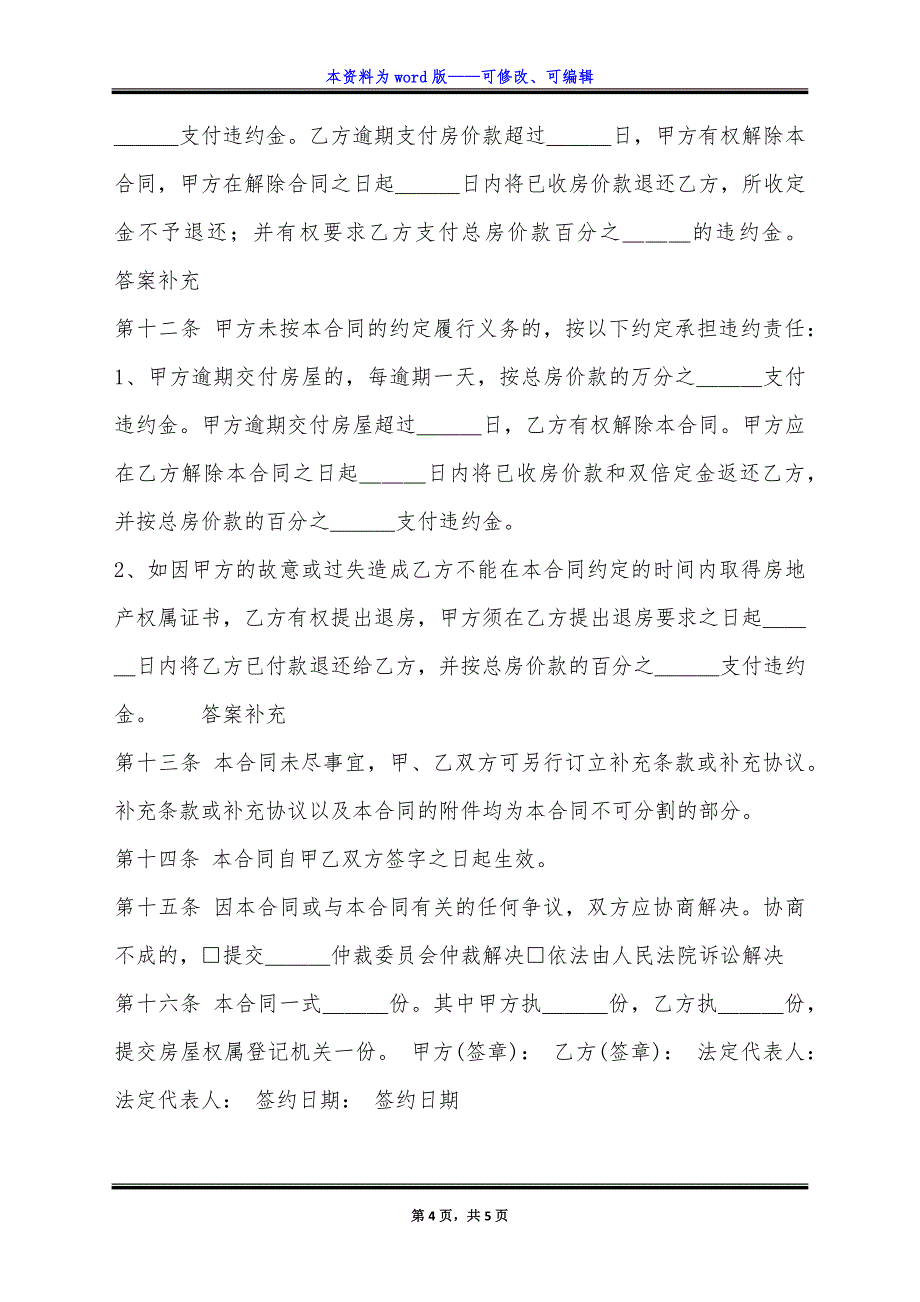 本资料为 word 版——可修改、可编辑
______支付违约金。乙方逾期支付房价款超过______日，甲方有权解除本
合同，甲方在解除合同之日起______日内将已收房价款退还乙方，所收定
金不予退还；并有权要求乙方支付总房价款百分之______的违约金。
答案补充
第十二条 甲方未按本合同的约定履行义务的，按以下约定承担违约责任：
1、甲方逾期交付房屋的，每逾期一天，按总房价款的万分之______支付
违约金。甲方逾期交付房屋超过______日，乙方有权解除本合同。甲方应
在乙方解除本合同之日起______日内将已收房价款和双倍定金返还乙方，
并按总房价款的百分之______支付违约金。
2、如因甲方的故意或过失造成乙方不能在本合同约定的时间内取得房地
产权属证书，乙方有权提出退房，甲方须在乙方提出退房要求之日起____
__日内将乙方已付款退还给乙方，并按总房价款的百分之______支付违约
金。 答案补充
第十三条 本合同未尽事宜，甲、乙双方可另行订立补充条款或补充协议。
补充条款或补充协议以及本合同的附件均为本合同不可分割的部分。
第十四条 本合同自甲乙双方签字之日起生效。
第十五条 因本合同或与本合同有关的任何争议，双方应协商解决。协商
不成的，□提交______仲裁委员会仲裁解决□依法由人民法院诉讼解决
第十六条 本合同一式______份。其中甲方执______份，乙方执______份，
提交房屋权属登记机关一份。 甲方(签章)： 乙方(签章)： 法定代表人：
法定代表人： 签约日期： 签约日期
第 4 页，共 5 页